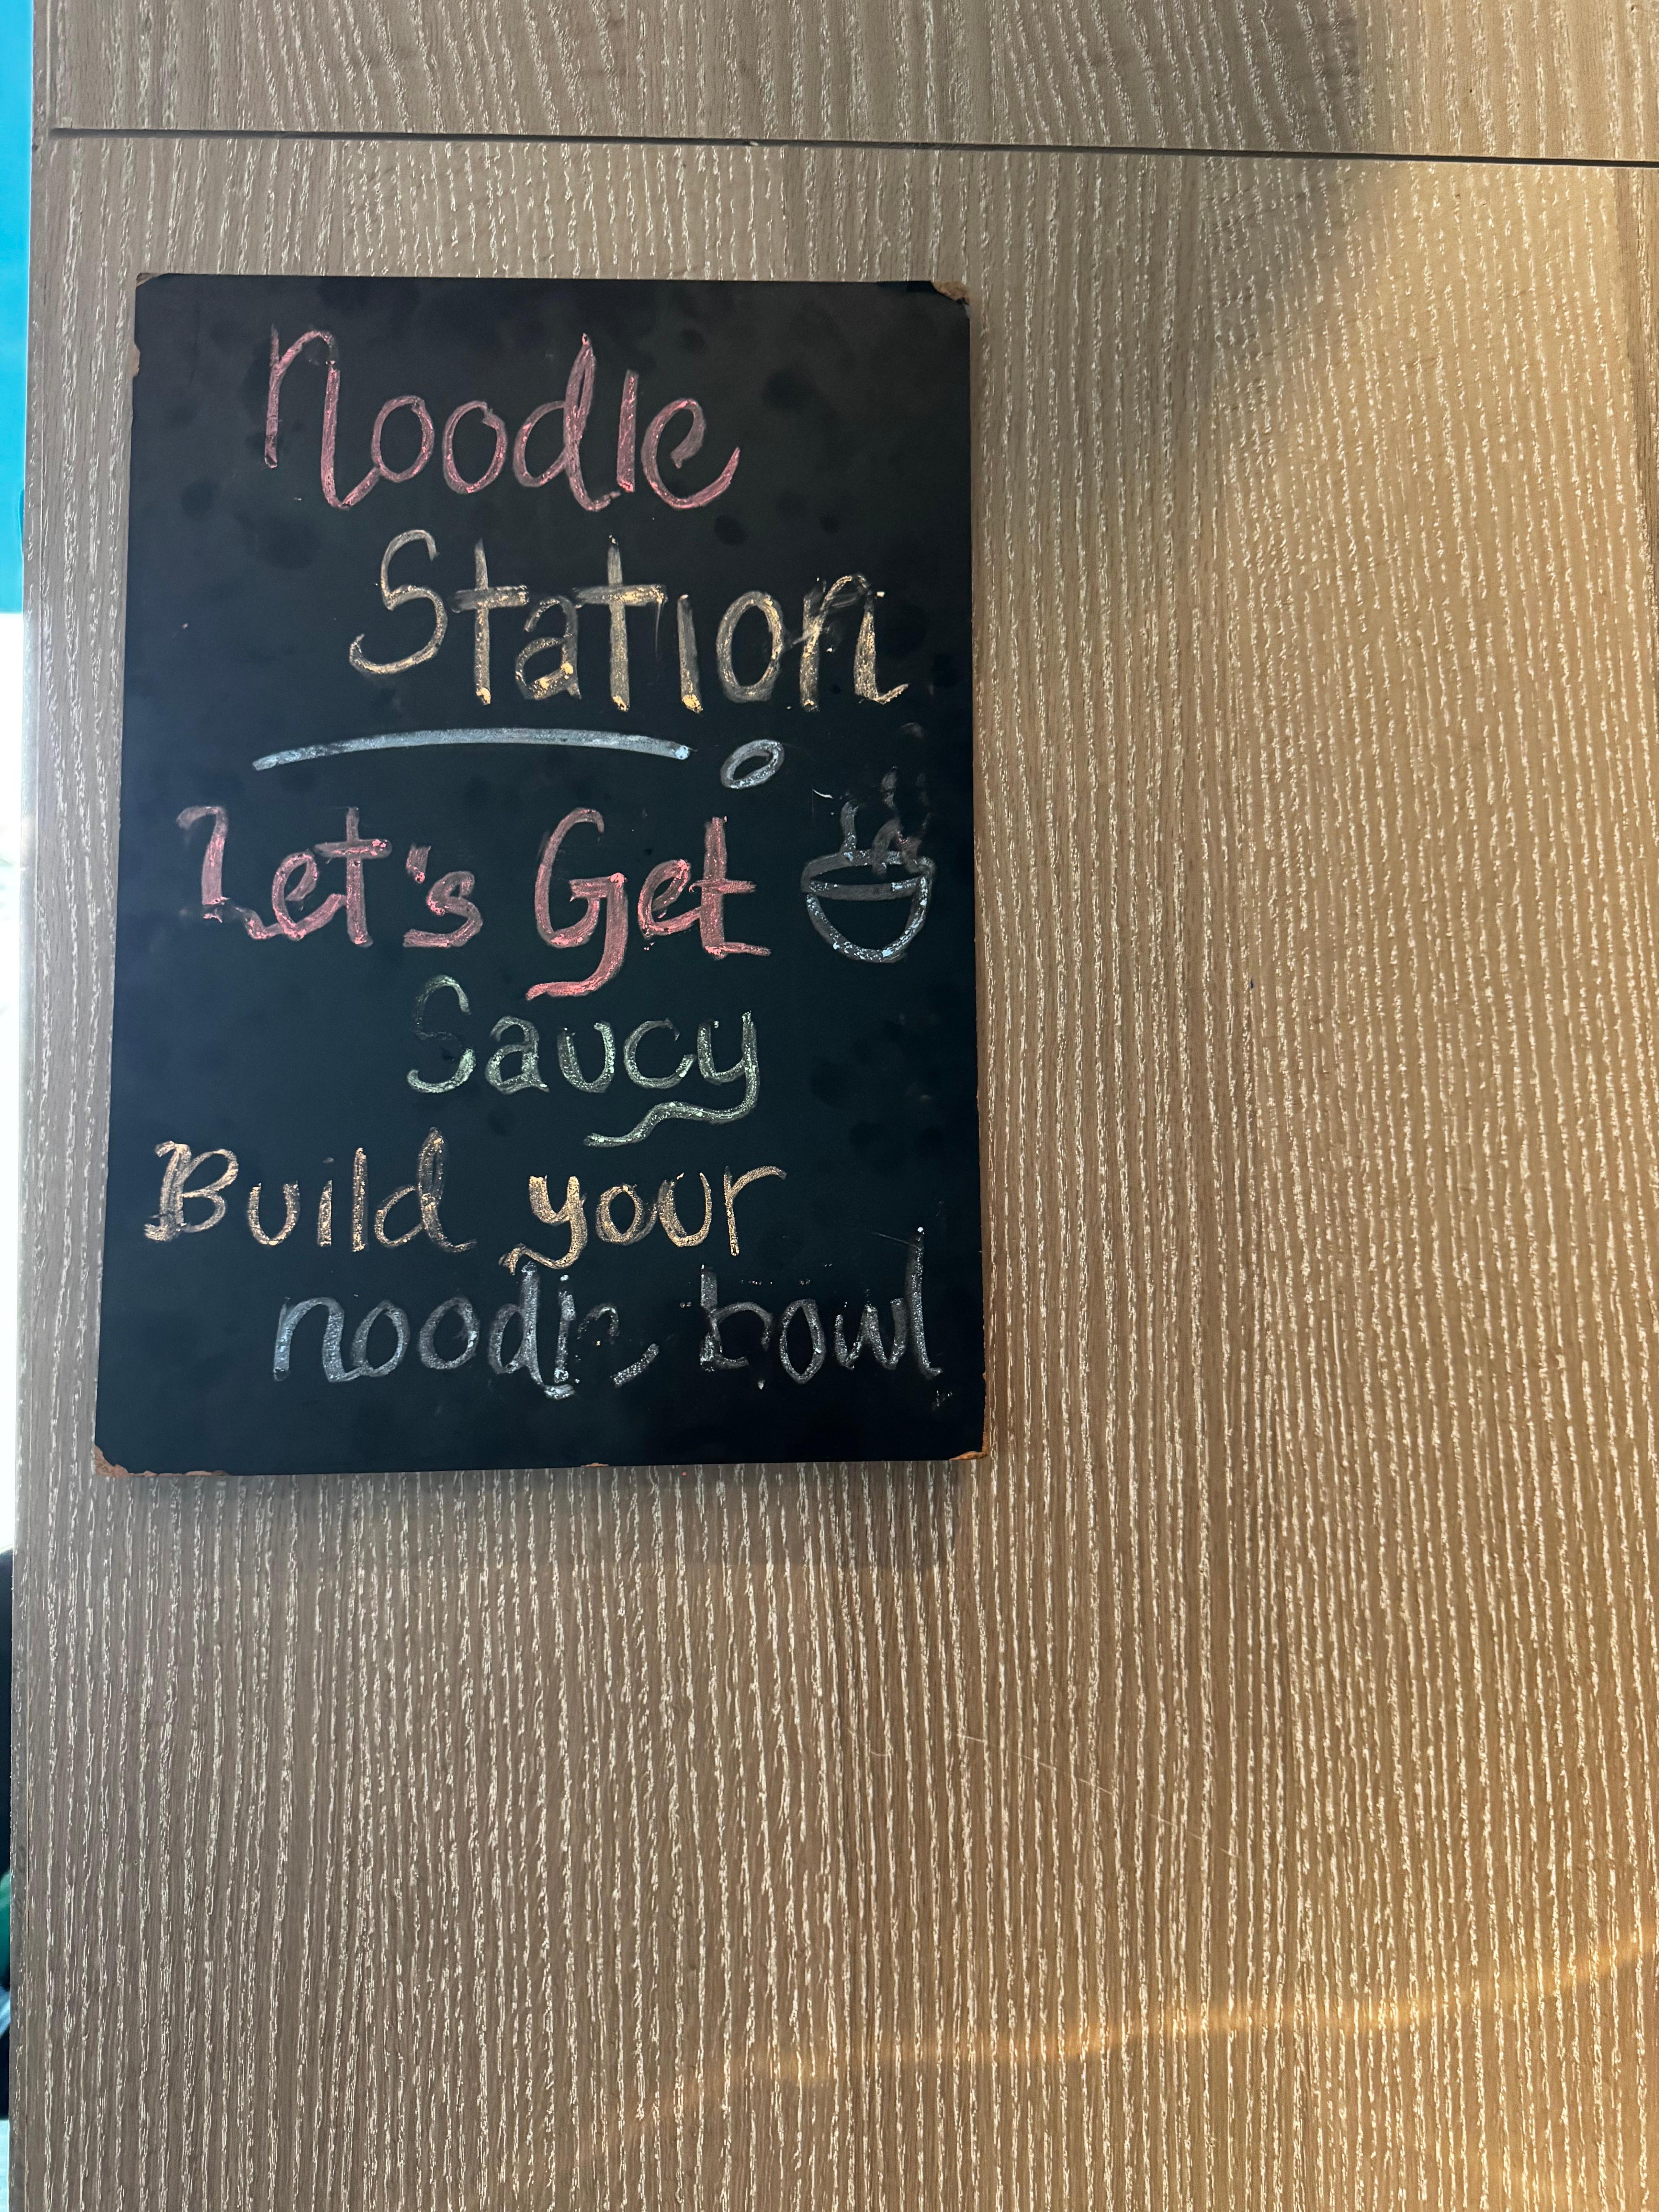 Noodle
Station
Let's Get
Saucy
Build your
noodle bowl